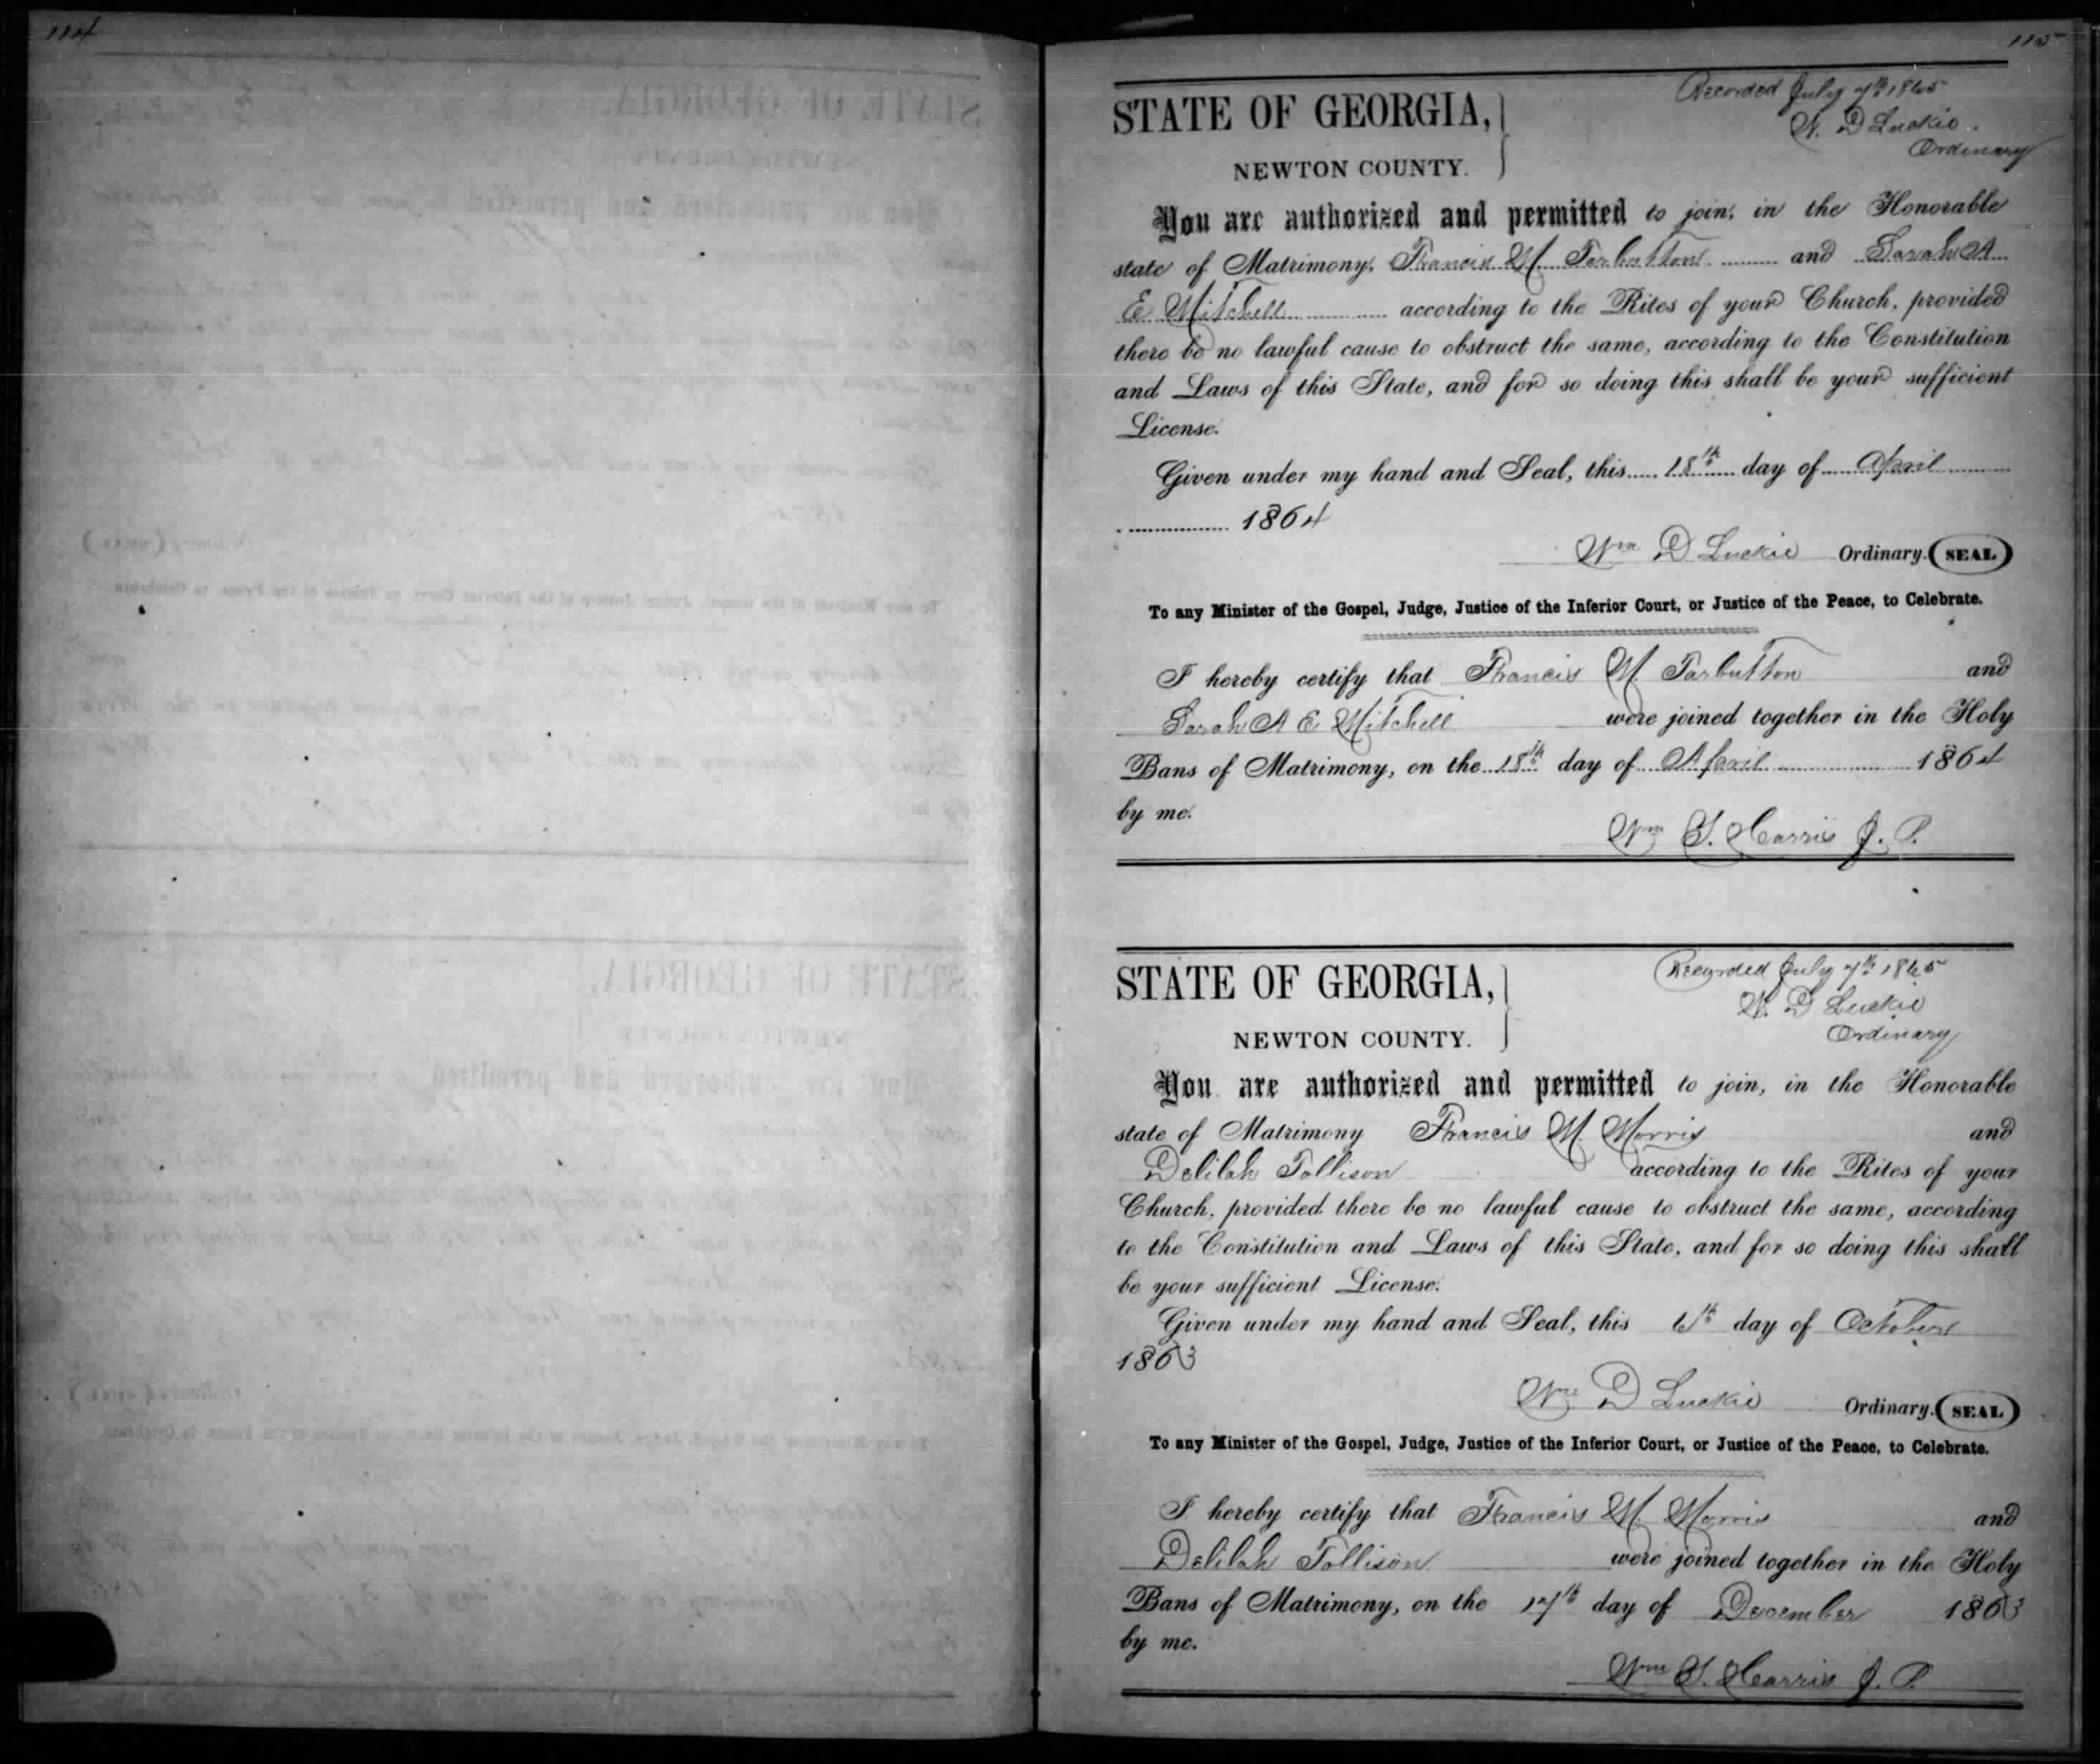 114
115
Recorded July 7th 1865
W. D Luckie.
Ordinary
STATE OF GEORGIA,
NEWTON COUNTY.
You are authorized and permitted to join, in the Honorable
state of Matrimony, Francis M Tarbutton and Sarah A
E Mitchell according to the Rites of your Church, provided
there be no lawful cause to obstruct the same, according to the Constitution
and Laws of this State, and for so doing this shall be your sufficient
License.
Given under my hand and Seal, this 18th day of April
1864
Wm D Luckie Ordinary. (SEAL)
To any Minister of the Gospel, Judge, Justice of the Inferior Court, or Justice of the Peace, to Celebrate.
I hereby certify that Francis M Tarbutton and
Sarah A E Mitchell were joined together in the Holy
Bans of Matrimony, on the 18th day of April 1864
by me.
Wm S. Harris J. P.
Recorded July 7th 1865
W. D Luckie
Ordinary
STATE OF GEORGIA,
NEWTON COUNTY.
You are authorized and permitted to join, in the Honorable
state of Matrimony Francis M. Morris and
Delilah Tollison according to the Rites of your
Church, provided there be no lawful cause to obstruct the same, according
to the Constitution and Laws of this State, and for so doing this shall
be your sufficient License.
Given under my hand and Seal, this 6th day of October
1863
Wm D Luckie Ordinary. (SEAL)
To any Minister of the Gospel, Judge, Justice of the Inferior Court, or Justice of the Peace, to Celebrate.
I hereby certify that Francis M. Morris and
Delilah Tollison were joined together in the Holy
Bans of Matrimony, on the 17th day of December 1863
by me.
Wm S. Harris J. P.